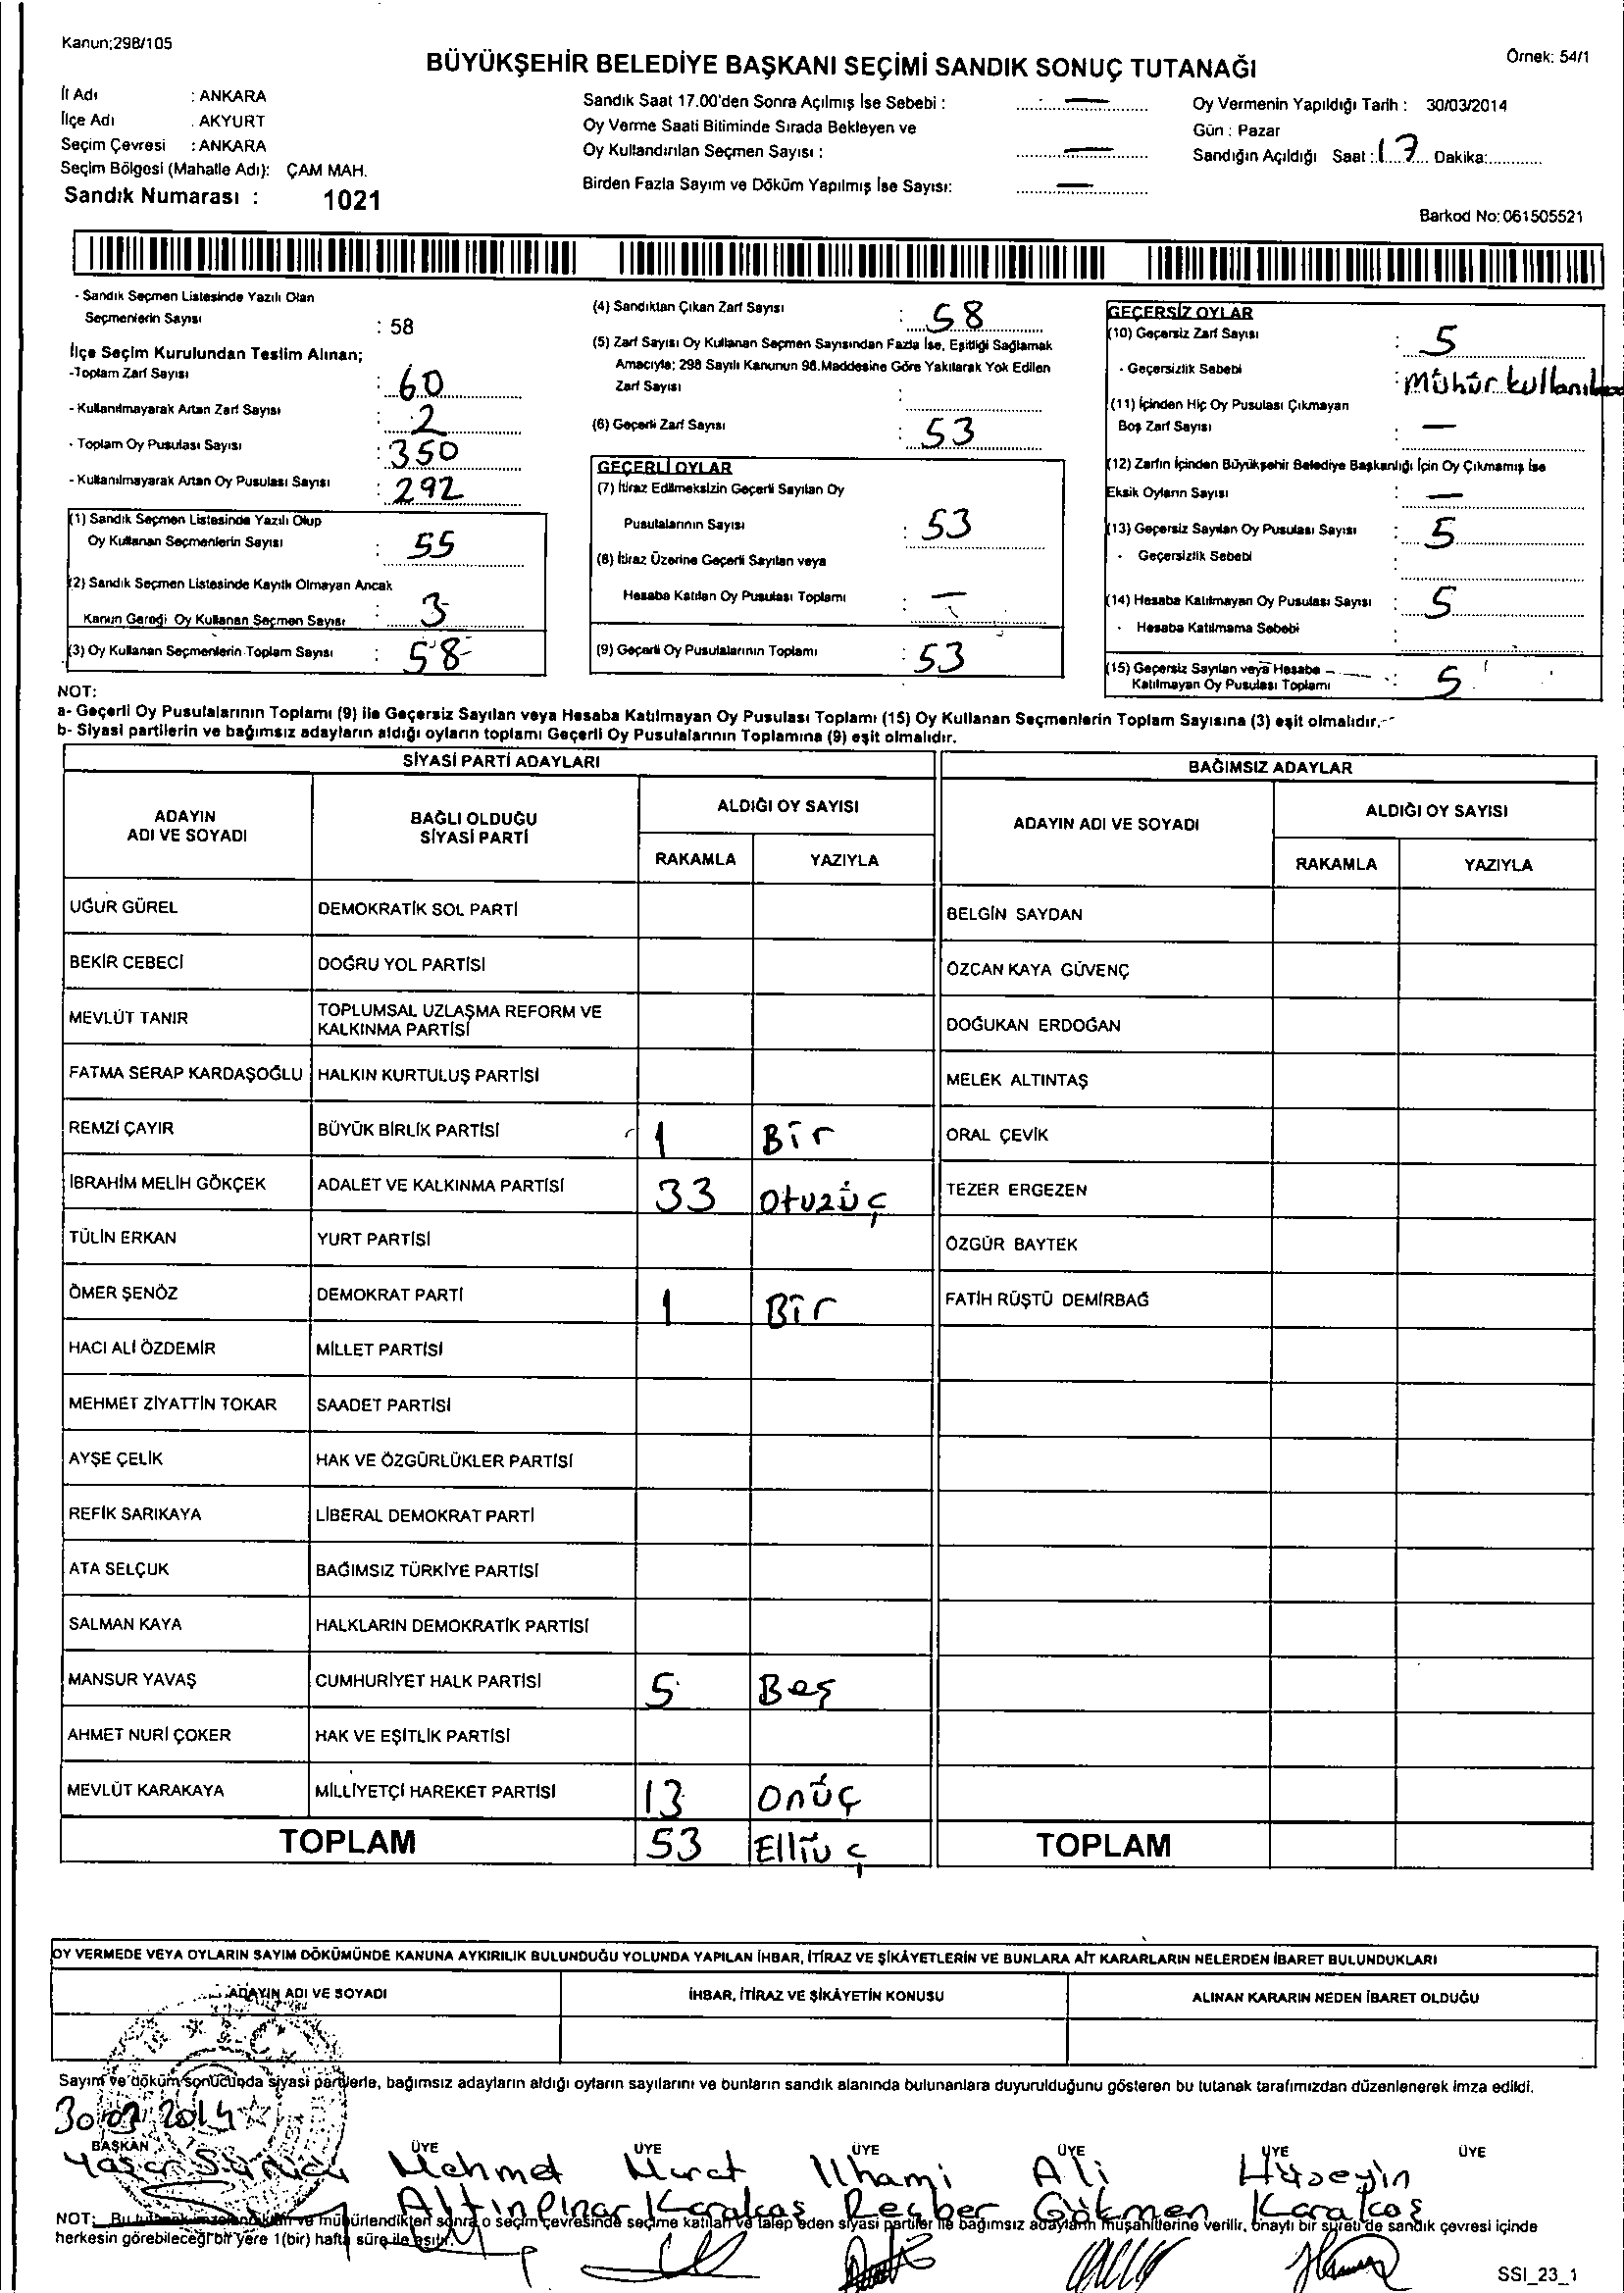 Kanun;298/105
Örnek: 54/1
BÜYÜKŞEHİR BELEDİYE BAŞKANI SEÇİMİ SANDIK SONUÇ TUTANAĞI
İl Adı : ANKARA
İlçe Adı . AKYURT
Seçim Çevresi : ANKARA
Seçim Bölgesi (Mahalle Adı): ÇAM MAH.
Sandık Numarası : 1021
Sandık Saat 17.00'den Sonra Açılmış İse Sebebi : —
Oy Verme Saati Bitiminde Sırada Bekleyen ve
Oy Kullandırılan Seçmen Sayısı : —
Birden Fazla Sayım ve Döküm Yapılmış İse Sayısı: —
Oy Vermenin Yapıldığı Tarih : 30/03/2014
Gün : Pazar
Sandığın Açıldığı Saat : 17 Dakika:
Barkod No: 061505521
- Sandık Seçmen Listesinde Yazılı Olan
Seçmenlerin Sayısı : 58
İlçe Seçim Kurulundan Teslim Alınan;
-Toplam Zarf Sayısı : 60
- Kullanılmayarak Artan Zarf Sayısı : 2
- Toplam Oy Pusulası Sayısı : 350
- Kullanılmayarak Artan Oy Pusulası Sayısı : 292
(1) Sandık Seçmen Listesinde Yazılı Olup
Oy Kullanan Seçmenlerin Sayısı : 55
(2) Sandık Seçmen Listesinde Kayıtlı Olmayan Ancak
Kanun Gereği Oy Kullanan Seçmen Sayısı : 3
(3) Oy Kullanan Seçmenlerin Toplam Sayısı : 58
(4) Sandıktan Çıkan Zarf Sayısı : 58
(5) Zarf Sayısı Oy Kullanan Seçmen Sayısından Fazla İse, Eşitliği Sağlamak
Amacıyla; 298 Sayılı Kanunun 98.Maddesine Göre Yakılarak Yok Edilen
Zarf Sayısı :
(6) Geçerli Zarf Sayısı : 53
GEÇERLİ OYLAR
(7) İtiraz Edilmeksizin Geçerli Sayılan Oy
Pusulalarının Sayısı : 53
(8) İtiraz Üzerine Geçerli Sayılan veya
Hesaba Katılan Oy Pusulası Toplamı : —
(9) Geçerli Oy Pusulalarının Toplamı : 53
GEÇERSİZ OYLAR
(10) Geçersiz Zarf Sayısı : 5
- Geçersizlik Sebebi : Mühür
(11) İçinden Hiç Oy Pusulası Çıkmayan
Boş Zarf Sayısı : —
(12) Zarfın İçinden Büyükşehir Belediye Başkanlığı İçin Oy Çıkmamış İse
Eksik Oyların Sayısı : —
(13) Geçersiz Sayılan Oy Pusulası Sayısı : 5
- Geçersizlik Sebebi :
(14) Hesaba Katılmayan Oy Pusulası Sayısı : 5
- Hesaba Katılmama Sebebi :
(15) Geçersiz Sayılan veya Hesaba
Katılmayan Oy Pusulası Toplamı : 5
NOT:
a- Geçerli Oy Pusulalarının Toplamı (9) ile Geçersiz Sayılan veya Hesaba Katılmayan Oy Pusulası Toplamı (15) Oy Kullanan Seçmenlerin Toplam Sayısına (3) eşit olmalıdır.
b- Siyasi partilerin ve bağımsız adayların aldığı oyların toplamı Geçerli Oy Pusulalarının Toplamına (9) eşit olmalıdır.
SİYASİ PARTİ ADAYLARI
ADAYIN ADI VE SOYADI BAĞLI OLDUĞU SİYASİ PARTİ ALDIĞI OY SAYISI
RAKAMLA YAZIYLA
UĞUR GÜREL DEMOKRATİK SOL PARTİ
BEKİR CEBECİ DOĞRU YOL PARTİSİ
MEVLÜT TANIR TOPLUMSAL UZLAŞMA REFORM VE KALKINMA PARTİSİ
FATMA SERAP KARDAŞOĞLU HALKIN KURTULUŞ PARTİSİ
REMZİ ÇAYIR BÜYÜK BİRLİK PARTİSİ 1 Bir
İBRAHİM MELİH GÖKÇEK ADALET VE KALKINMA PARTİSİ 33 Otuzüç
TÜLİN ERKAN YURT PARTİSİ
ÖMER ŞENÖZ DEMOKRAT PARTİ 1 Bir
HACI ALİ ÖZDEMİR MİLLET PARTİSİ
MEHMET ZİYATTİN TOKAR SAADET PARTİSİ
AYŞE ÇELİK HAK VE ÖZGÜRLÜKLER PARTİSİ
REFİK SARIKAYA LİBERAL DEMOKRAT PARTİ
ATA SELÇUK BAĞIMSIZ TÜRKİYE PARTİSİ
SALMAN KAYA HALKLARIN DEMOKRATİK PARTİSİ
MANSUR YAVAŞ CUMHURİYET HALK PARTİSİ 5 Beş
AHMET NURİ ÇOKER HAK VE EŞİTLİK PARTİSİ
MEVLÜT KARAKAYA MİLLİYETÇİ HAREKET PARTİSİ 13 Onüç
TOPLAM 53 Elliüç
BAĞIMSIZ ADAYLAR
ADAYIN ADI VE SOYADI ALDIĞI OY SAYISI
RAKAMLA YAZIYLA
BELGİN SAYDAN
ÖZCAN KAYA GÜVENÇ
DOĞUKAN ERDOĞAN
MELEK ALTINTAŞ
ORAL ÇEVİK
TEZER ERGEZEN
ÖZGÜR BAYTEK
FATİH RÜŞTÜ DEMİRBAĞ
TOPLAM
OY VERMEDE VEYA OYLARIN SAYIM DÖKÜMÜNDE KANUNA AYKIRILIK BULUNDUĞU YOLUNDA YAPILAN İHBAR, İTİRAZ VE ŞİKÂYETLERİN VE BUNLARA AİT KARARLARIN NELERDEN İBARET BULUNDUKLARI
ADAYIN ADI VE SOYADI İHBAR, İTİRAZ VE ŞİKÂYETİN KONUSU ALINAN KARARIN NEDEN İBARET OLDUĞU
Sayım ve döküm sonucunda siyasi partilerle, bağımsız adayların aldığı oyların sayılarını ve bunların sandık alanında bulunanlara duyurulduğunu gösteren bu tutanak tarafımızdan düzenlenerek imza edildi.
30.03.2014
BAŞKAN ÜYE ÜYE ÜYE ÜYE ÜYE ÜYE
Yaşar Mehmet Murat İlhami Ali Hüseyin
Altınpınar Karakaş Reşber Gökmen Karakoş
NOT: mühürlendikten sonra o seçim çevresinde seçime katılan ve talep eden siyasi partiler ile bağımsız adayların müşahitlerine verilir, onaylı bir sureti de sandık çevresi içinde
herkesin görebileceği bir yere 1(bir) hafta süre ile asılır.
SSI_23_1